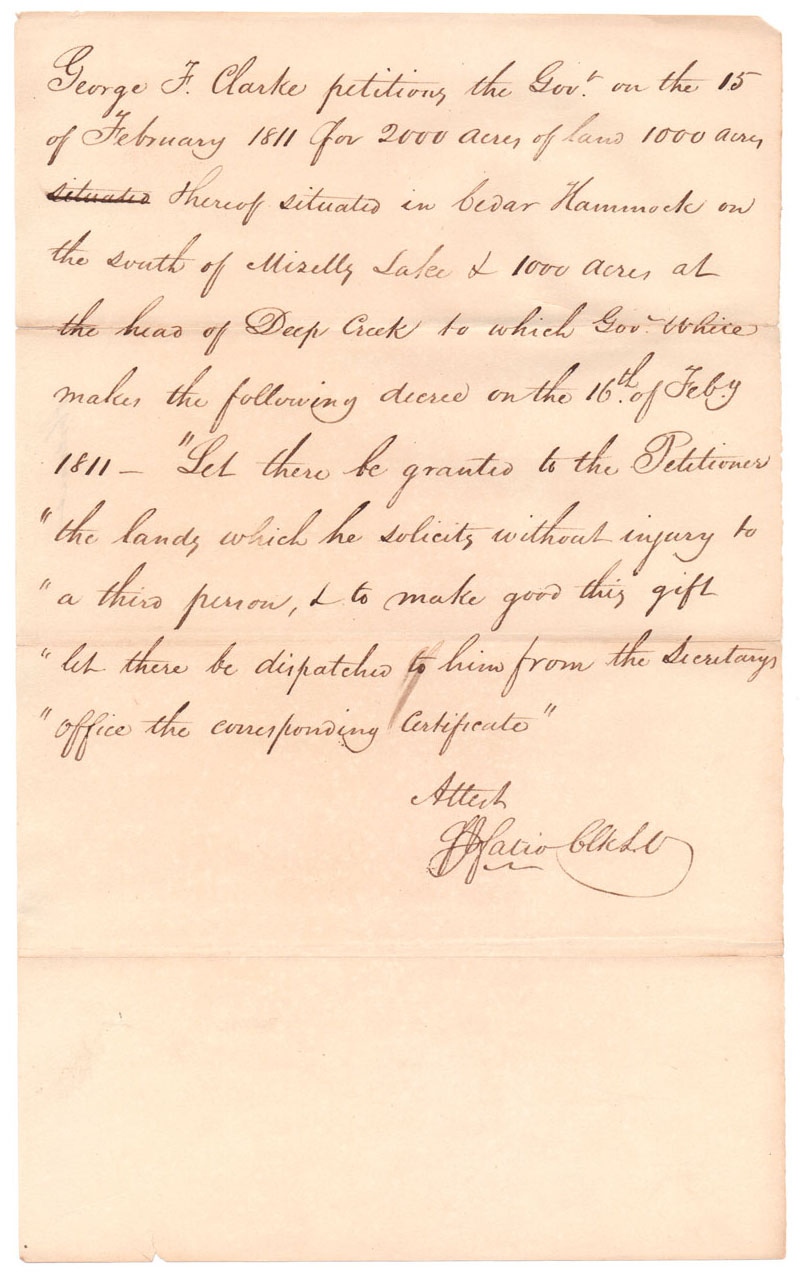 George F. Clarke petitions the Govr. on the 15
of February 1811 for 2000 acres of land 1000 acres
situated thereof situated in Cedar Hammock on
the south of Mizells Lake & 1000 acres at
the head of Deep Creek to which Govr. White
makes the following decree on the 16th. of Feby
1811 — "Let there be granted to the Petitioner
"the lands which he solicits without injury to
"a third person, & to make good this gift
"let there be dispatched to him from the Secretarys
"office the corresponding Certificate"
Attest
Fatio Clk